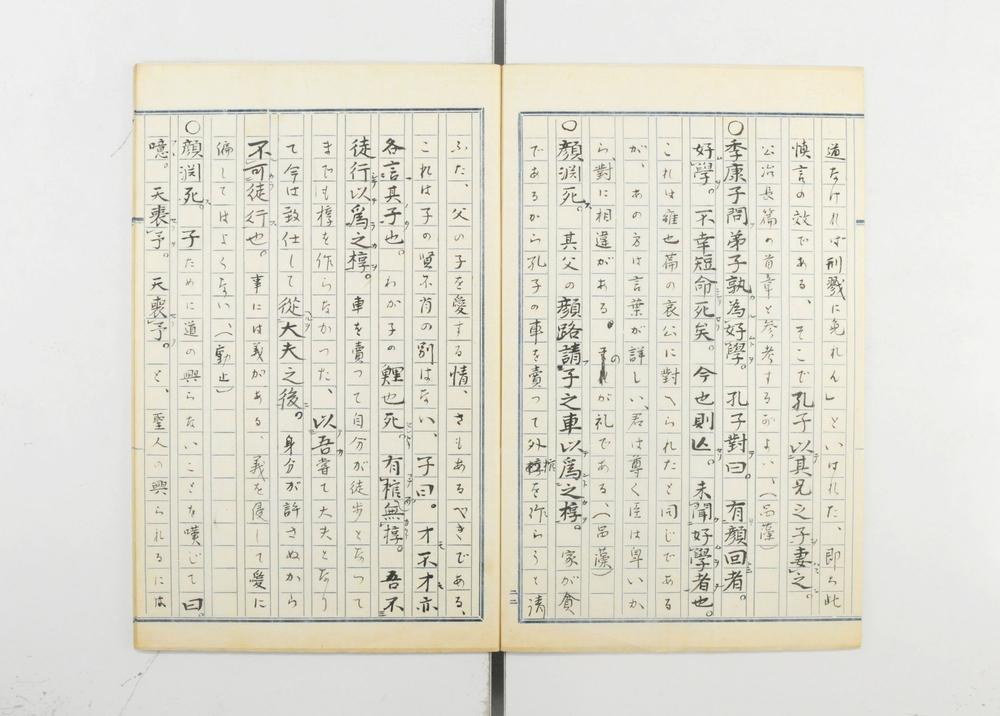 道なければ刑戮に免れん」といはれた、即ち此
慎言の效である、そこで孔子以其兄之子妻之。
公冶長篇の首章と参考するがよい、(品藻)
○季康子問弟子孰為好學。孔子對曰。有顔回者。
好學。不幸短命死矣。今也則亡。未聞好學者也。
これは雍也篇の哀公に對へられたと同じである
が、あの方は言葉が詳しい、君は尊く臣は卑いか
ら、對に相違がある。のが礼である、(品藻)
○顔淵死。其父の顔路請子之車以爲之椁。家が貧
であるから孔子の車を賣つて外棺を作らうと請
ふた、父の子を愛する情、さもあるべきである、
これは子の賢不肖の別はない、子曰。才不才亦
各言其子也。わが子の鯉也死。有棺無椁。吾不
徒行以爲之椁。車を賣つて自分が徒歩となつて
までも椁を作らなかつた、以吾嘗て大夫となり
て今は致仕して從大夫之後。身分が許さぬから
不可徒行也。事には義がある、義を侵して愛に
偏してはよくない、(動止)
○顔淵死。子ために道の興らないことを嘆じて曰。
噫。天喪予。天喪予。と、聖人の興られるには